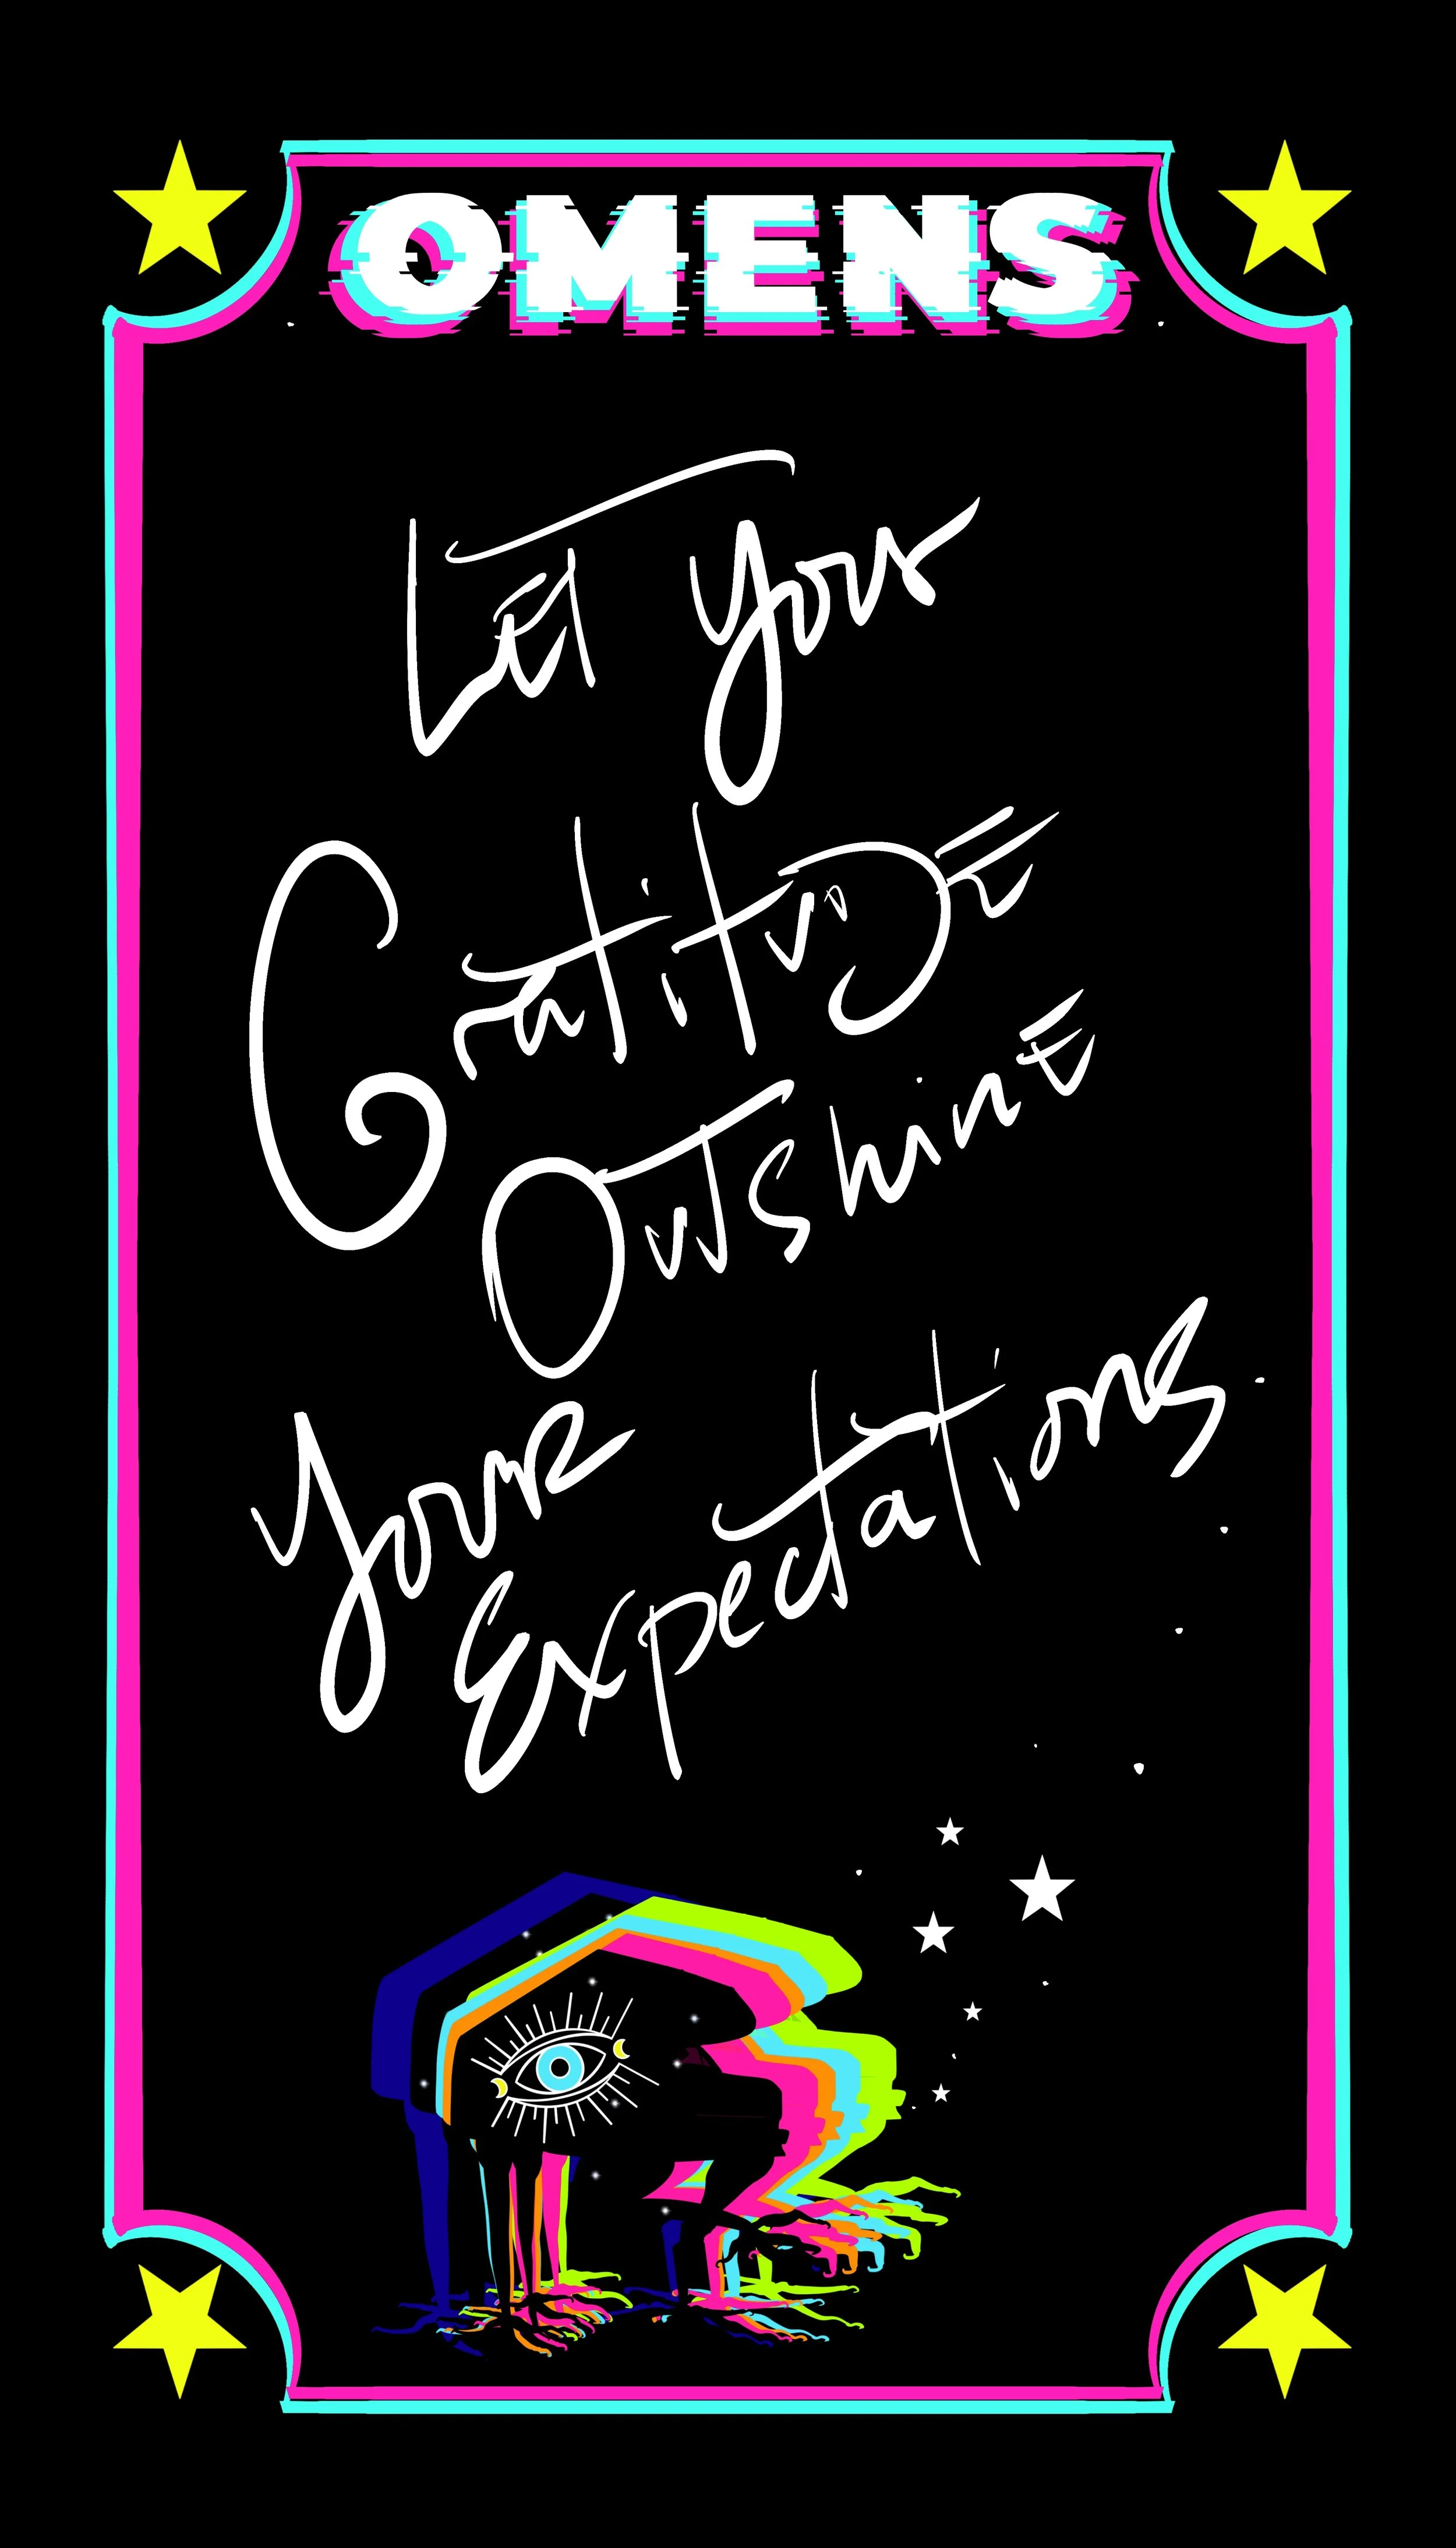 OMENS
Let Your
Gratitude
Outshine
Your
Expectations.